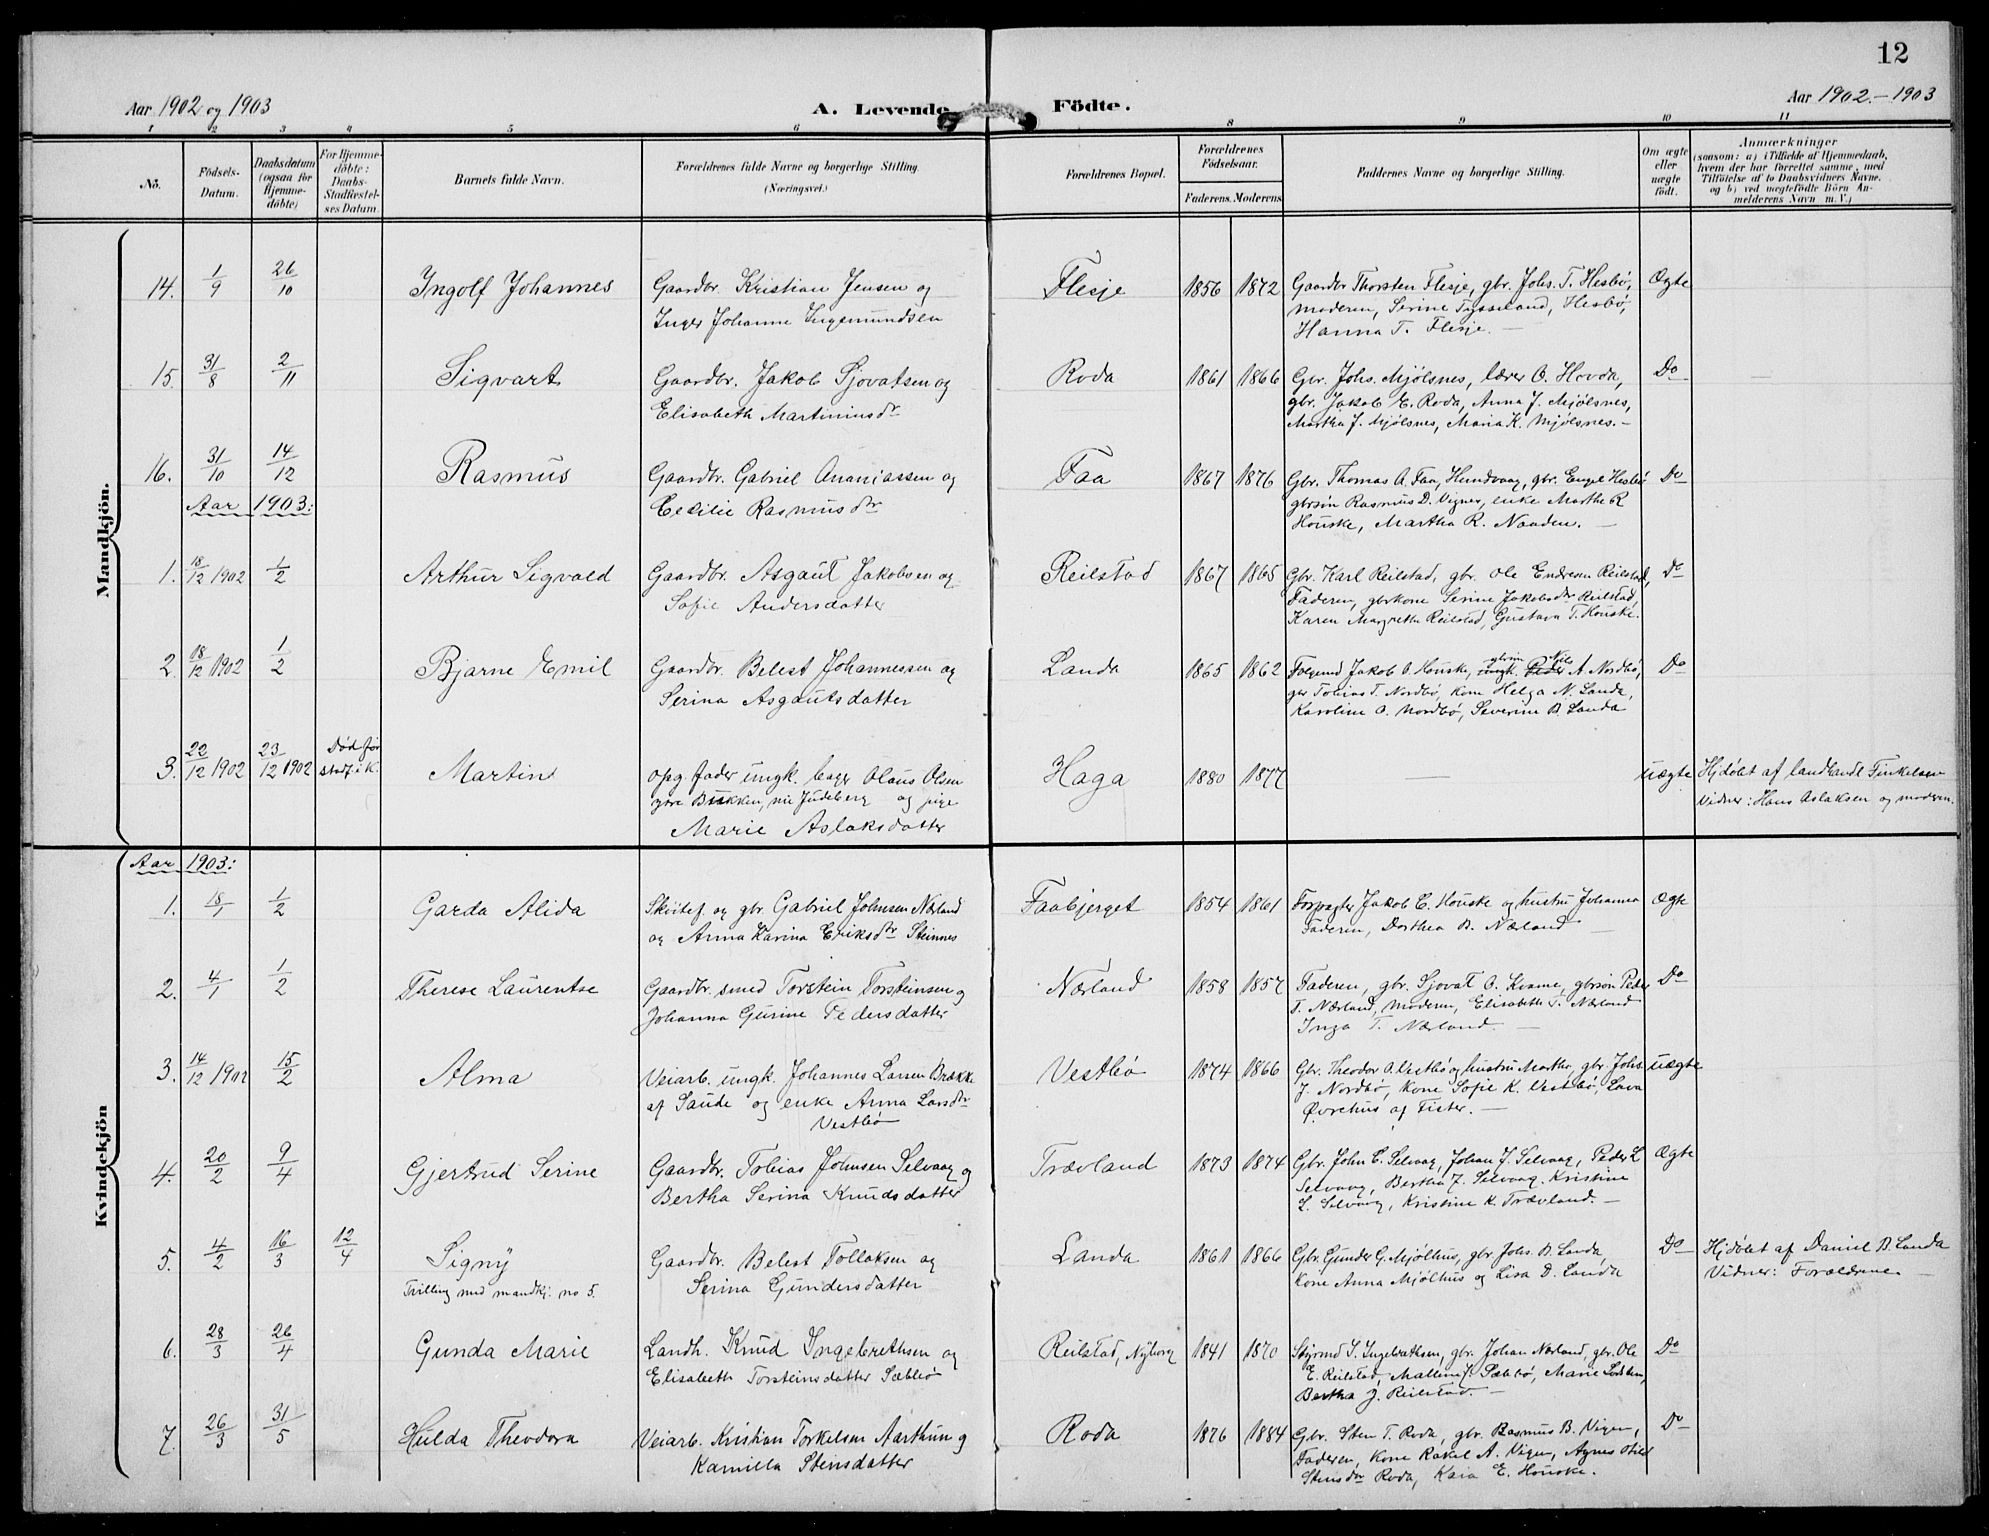 12
Aar 1902 og 1903
A. Levende Födte.
Aar 1902.-1903
1 2 3 4 5 6 8 9 10 11
No.
Födsels-Datum.
Daabsdatum (ogsaa for Hjemme-döbte)
For Hjemme-döbte: Daabs-Stadfæstel-ses Datum.
Barnets fulde Navn.
Forældrenes fulde Navne og borgerlige Stilling. (Næringsvei.)
Forældrenes Bopæl.
Forældrenes Födselsaar.
Faderens. Moderens
Faddernes Navne og borgerlige Stilling.
Om ægte eller uægte født.
Anmærkninger
(saasom: a) i Tilfælde af Hjemmedaab,
hvem der har forrettet samme, med
Tilföielse af to Daabsvidners Navne.
og b) ved uægtefödte Börn An-
melderens Navn m. V.)
Mandkjön.
14. 1/9 26/10 Ingolf Johannes Gaardbr. Kristian Jensen og Flesje 1856 1872 Gaardbr Thorsten Flesje, gbr. Johs. T. Hesbö, Ægte
Inger Johanne Ingemundsen moderen, Serine Tysseland, Hesbö,
Hanna T. Flesje. —
15. 31/8 2/11 Sigvart Gaardbr. Jakob Sjovatsen og Roda 1861 1866 Gbr. Johs. Mjölsnes, lærer O. Hovda, Do
Elisabeth Martinusdr gbr. Jakob E. Roda, Anna J. Mjölsnes,
Martha J. Mjölsnes, Maria K. Mjölsnes. —
16. 31/10 14/12 Rasmus Gaardbr. Gabriel Ananiassen og Faa 1867 1876 Gbr. Thomas A. Faa, Hundvaag, gbr. Engel Hesbö Do
Aar 1903: Cecilie Rasmusdr gbrsön Rasmus D. Vignes, enke Marthe R
Houske, Martha R. Naaden. —
1. 18/12 1902 1/2 Arthur Sigvald Gaardbr. Asgaut Jakobsen og Reilstad 1867 1865 Gbr. Karl Reilstad, gbr. Ole Endresen Reilstad, Do
Sofie Andersdatter Faderen, gbrkone Serine Jakobsdr Reilstad,
Karen Margrethe Reilstad, Gustava T. Houske.
2. 18/12 1902 1/2 Bjarne Emil Gaardbr. Belest Johannessen og Landa 1865 1862 Jakob O. Houske, gbrsön Nils A Nordbö, Do
Serina Asgautsdatter Tobias T. Nordbö, kone Helga N. Landa,
Karoline O. Nordbö, Severine B. Landa
3. 22/12 1902 23/12 1902 Död før stadf. i K. Martin opg. fader ungk. Olaus Olsen Haga 1880 1877 — uægte Hjdöbt af
og pige Vidner: Hans Aslaksen og moderen.
Marie Aslaksdatter
Kvindekjön
Aar 1903:
1. 18/1 1/2 Garda Alida Sköitef. og gbr. Gabriel Johnsen Nærland Faabjerget 1854 1861 Forpagter Jakob E. Houske og hustru Johanna Ægte
og Anna Karina Eriksdr Steinnes Faderen, Dorthea B. Nærland —
2. 4/1 1/2 Therese Laurentse Gaardbr. smed Torstein Torsteinsen og Nærland 1858 1857 Faderen, gbr. Sjovat O. Kvame, gbrsön Peder Do
Johanna Gurine Pedersdatter T. Nærland, Moderen, Elisabeth T. Nærland
Inga T. Nærland. —
3. 14/12 1902 15/2 Alma Veiarb. ungk. Johannes Larsen Brække Vestbö 1874 1866 Gbr. Theodor A. Vestbö og hustru Martha, gbr. Johs. uægte
af Saude og enke Anna Larsdr J. Nordbö, Kone Sofie K. Vestbö, Lava
Vestbö Övrehus af Fister. —
4. 20/2 9/4 Gjertrud Serine Gaardbr. Tobias Johnsen Selvaag og Trævland 1873 1874 Gbr. John E. Selvaag, Johan J. Selvaag, Peder L Ægte
Bertha Serina Knudsdatter Selvaag, Bertha J. Selvaag, Kristine
L. Selvaag, Kristine K. Trævland. —
5. 4/2 16/3 12/4 Signy Gaardbr. Belest Tollaksen og Landa 1861 1866 Gbr. Gunder G. Mjölhus, gbr. Johs. B. Landa Do Hjdöbt af Daniel B. Landa
Tvilling med mandkj. no 5. Serina Gundersdatter Kone Anna Mjölhus og Lisa D. Landa Vidner: Forældrene. —
6. 28/3 26/4 Gunda Marie Landh. Knud Ingebrethsen og Reilstad, Nyborg 1841 1870 Ingebrethsen, gbr. Johan Nærland, gbr. Ole Do
Elisabeth Torsteinsdatter Sæbbö E. Reilstad, Malline J. Sæbbö, Marie
Bertha J. Reilstad. —
7. 26/3 31/5 Hulda Theodora Veiarb. Kristian Torkelsen Aarthun og Roda 1876 1884 Gbr. Sten T. Roda, gbr. Rasmus B. Vigen, Do
Kamilla Stensdatter Faderen, Kone Rakel A. Vigen, Agnes Otild
Stensdr Roda, Kaia E. Houske.